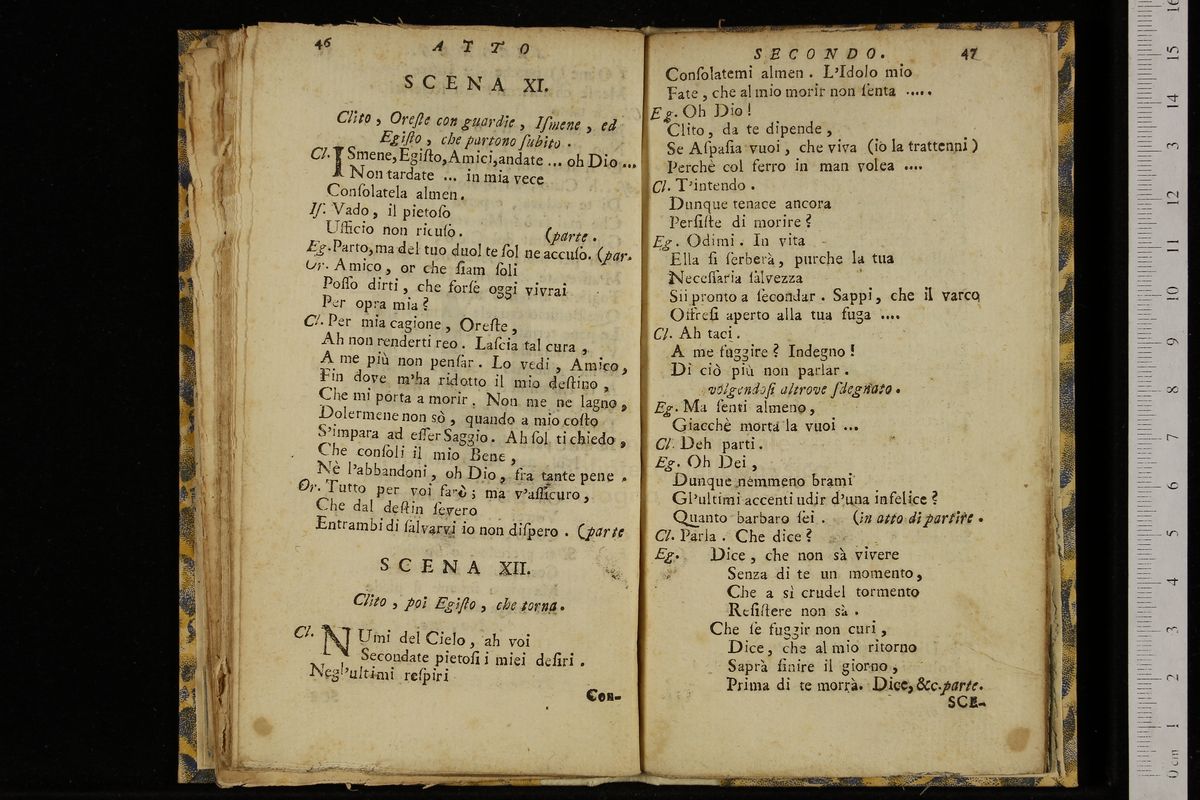 46 ATTO
SCENA XI.
Clito, Oreſte con guardie, Iſmene, ed
Egiſto, che partono ſubito.
Cl. ISmene, Egiſto, Amici, andate ... oh Dio ...
Non tardate ... in mia vece
Conſolatela almen.
Iſ. Vado, il pietoſo
Ufficio non ricuſo. (parte.
Eg. Parto, ma del tuo duol te ſol ne accuſo. (par.
Or. Amico, or che ſiam ſoli
Poſſo dirti, che forſe oggi vivrai
Per opra mia?
Cl. Per mia cagione, Oreſte,
Ah non renderti reo. Laſcia tal cura,
A me più non penſar. Lo vedi, Amico,
Fin dove m'ha ridotto il mio deſtino,
Che mi porta a morir. Non me ne lagno,
Dolermene non sò, quando a mio coſto
S'impara ad eſſer Saggio. Ah ſol ti chiedo,
Che conſoli il mio Bene,
Nè l'abbandoni, oh Dio, fra tante pene.
Or. Tutto per voi farò; ma v'aſſicuro,
Che dal deſtin ſevero
Entrambi di ſalvarvi io non diſpero. (parte
SCENA XII.
Clito, poi Egiſto, che torna.
Cl. NUmi del Cielo, ah voi
Secondate pietoſi i miei deſiri.
Negl'ultimi reſpiri
Con-
SECONDO. 47
Conſolatemi almen. L'Idolo mio
Fate, che al mio morir non ſenta .....
Eg. Oh Dio!
Clito, da te dipende,
Se Aſpaſia vuoi, che viva (io la trattenni)
Perchè col ferro in man volea ....
Cl. T'intendo.
Dunque tenace ancora
Perſiſte di morire?
Eg. Odimi. In vita
Ella ſi ſerberà, purche la tua
Neceſſaria ſalvezza
Sii pronto a ſecondar. Sappi, che il varco
Offreſi aperto alla tua fuga ....
Cl. Ah taci.
A me fuggire? Indegno!
Di ciò più non parlar.
volgendoſi altrove ſdegnato.
Eg. Ma ſenti almeno,
Giacchè morta la vuoi ...
Cl. Deh parti.
Eg. Oh Dei,
Dunque nemmeno brami
Gl'ultimi accenti udir d'una infelice?
Quanto barbaro ſei. (in atto di partire.
Cl. Parla. Che dice?
Eg. Dice, che non sà vivere
Senza di te un momento,
Che a sì crudel tormento
Reſiſtere non sà.
Che ſe fuggir non curi,
Dice, che al mio ritorno
Saprà finire il giorno,
Prima di te morrà. Dice, &c. parte.
SCE-
0 cm 1 2 3 4 5 6 7 8 9 10 11 12 13 14 15 16